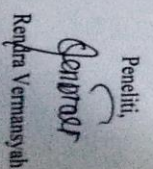 Peneliti,
Rendra Vermansyah